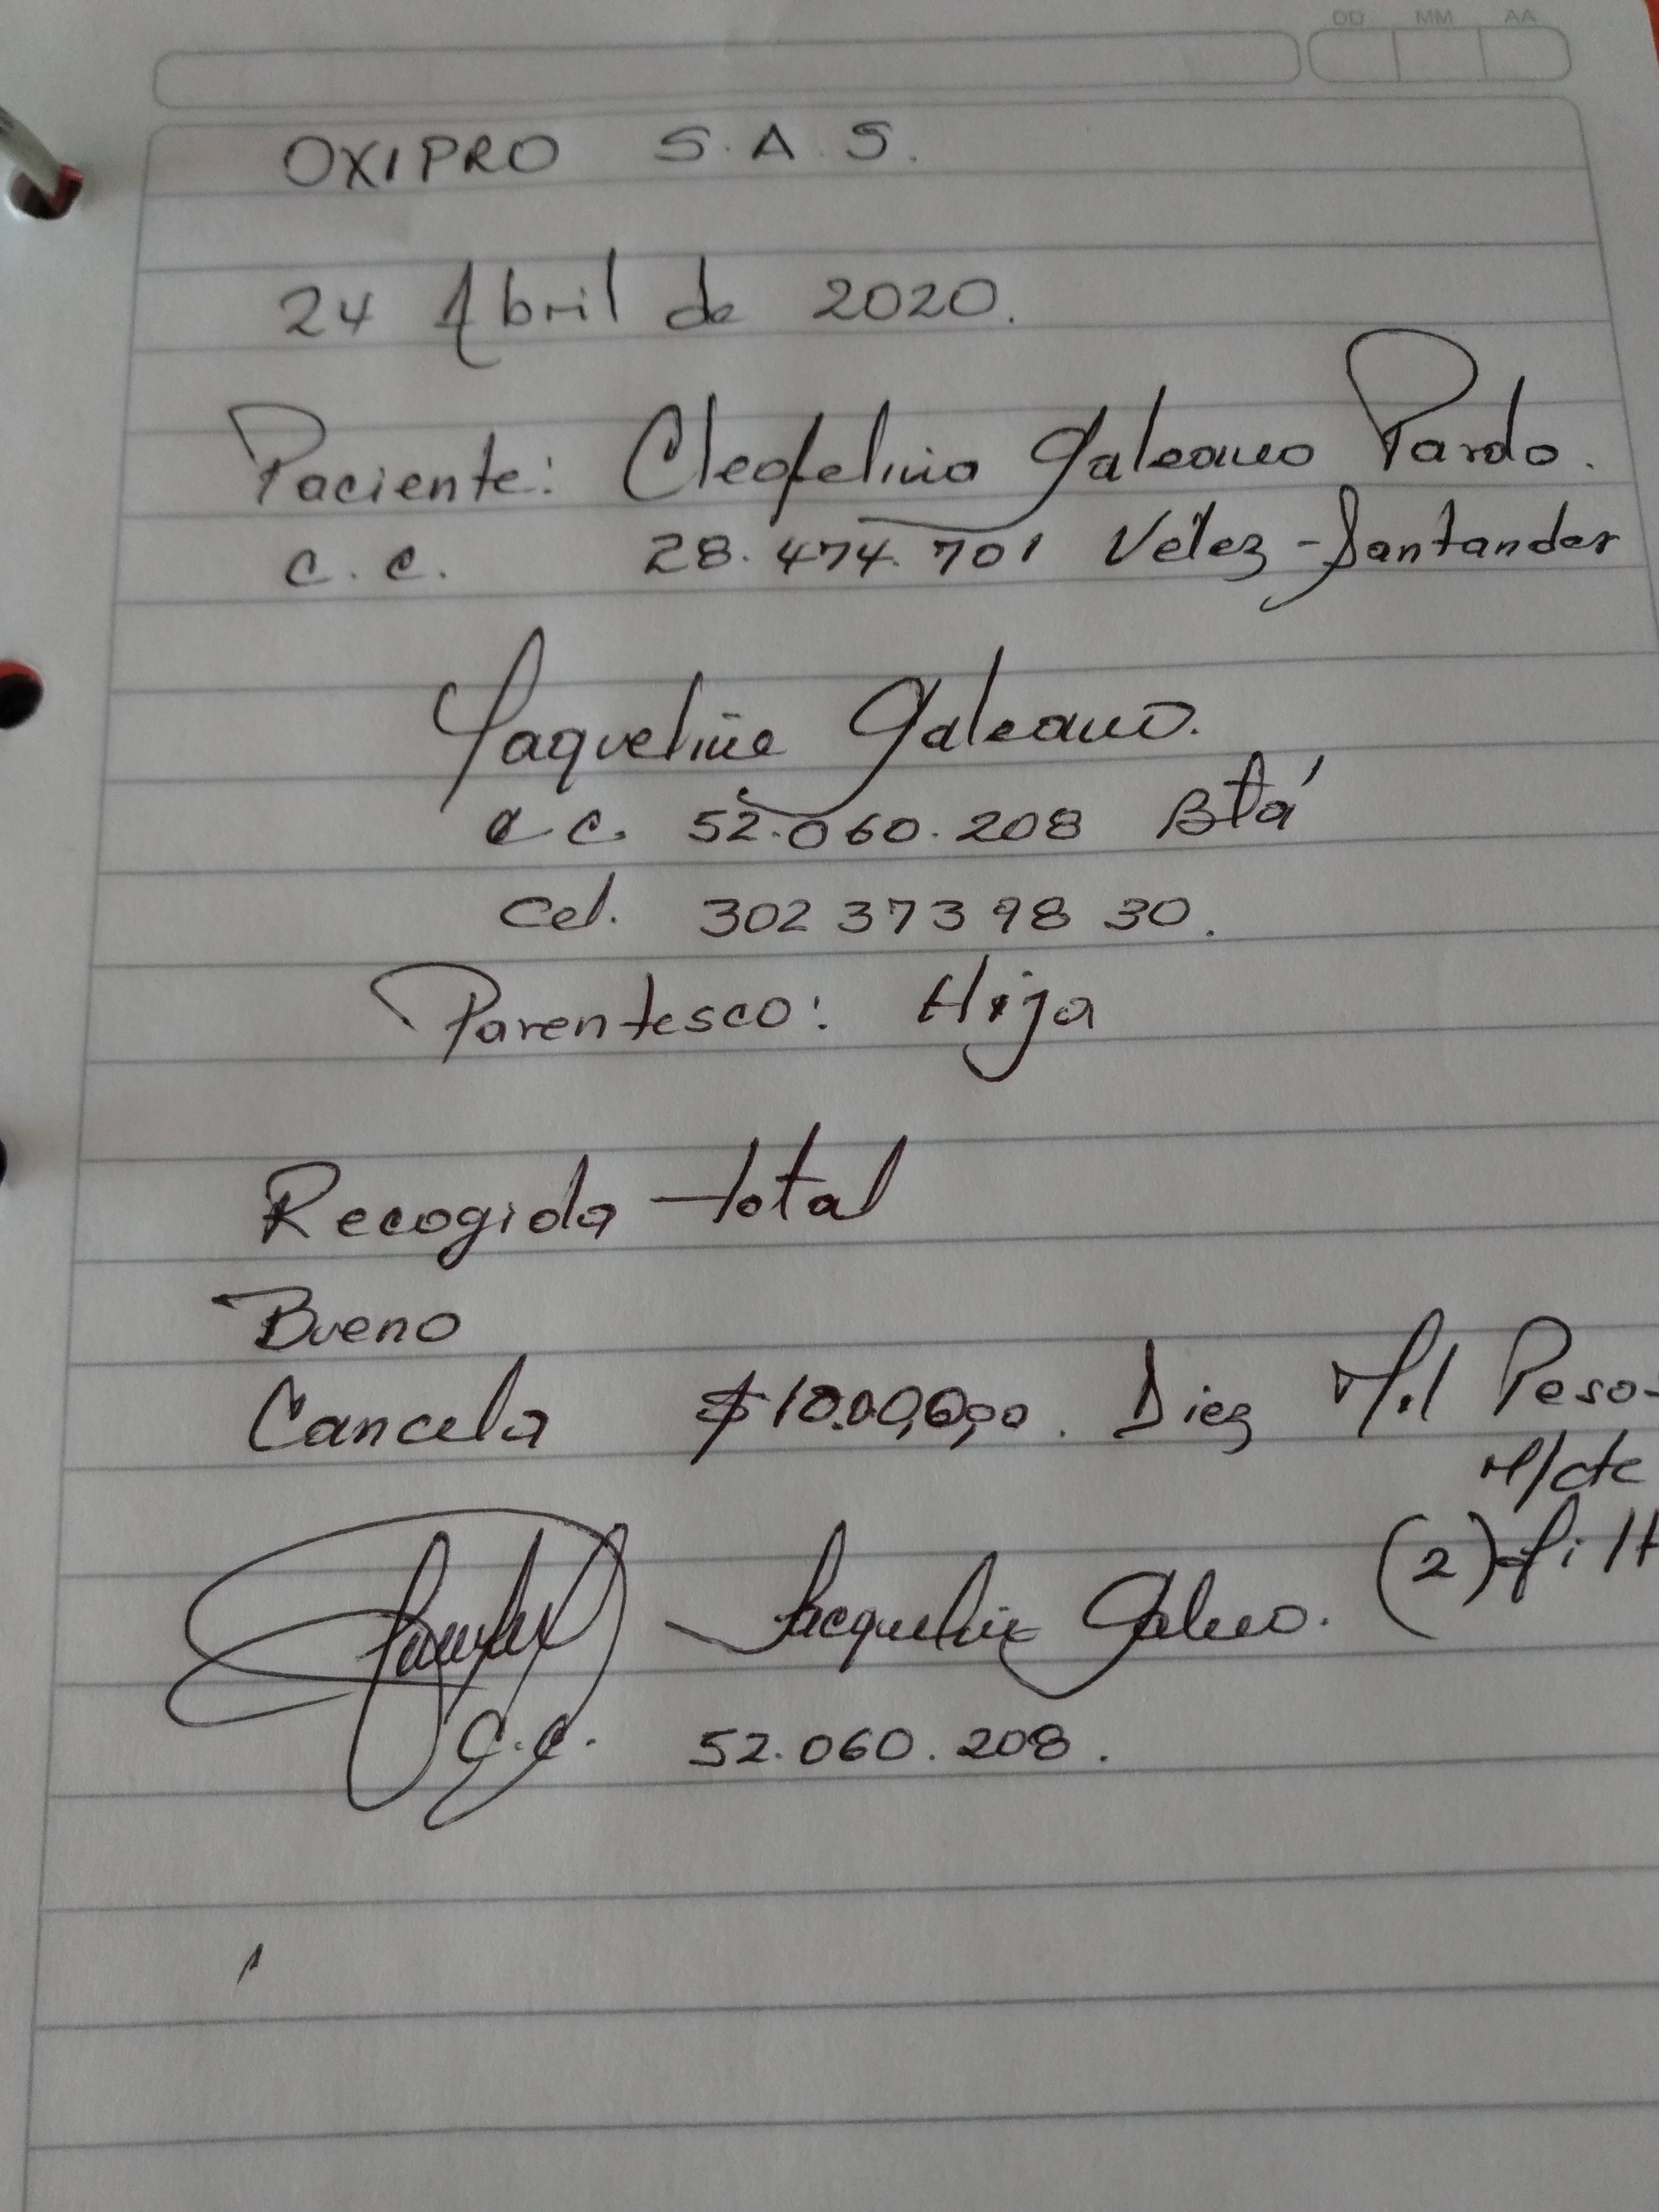 DD MM AA
OXIPRO S.A.S.
24 Abril de 2020.
Paciente: Cleofelina Galeano Pardo.
C.C. 28.474.701 Vélez - Santander
Jaqueline Galeano.
C.C. 52.060.208 Btá
Cel. 302 373 98 30.
Parentesco: Hija
Recogida total
Bueno
Cancela Diez Mil Peso
M/cte
(2) filt
Jacqueline Galeano.
C.C. 52.060.208.